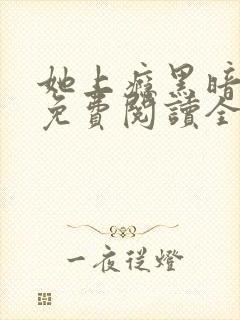 她上癮黑暗
免費閱讀全
一夜從燈